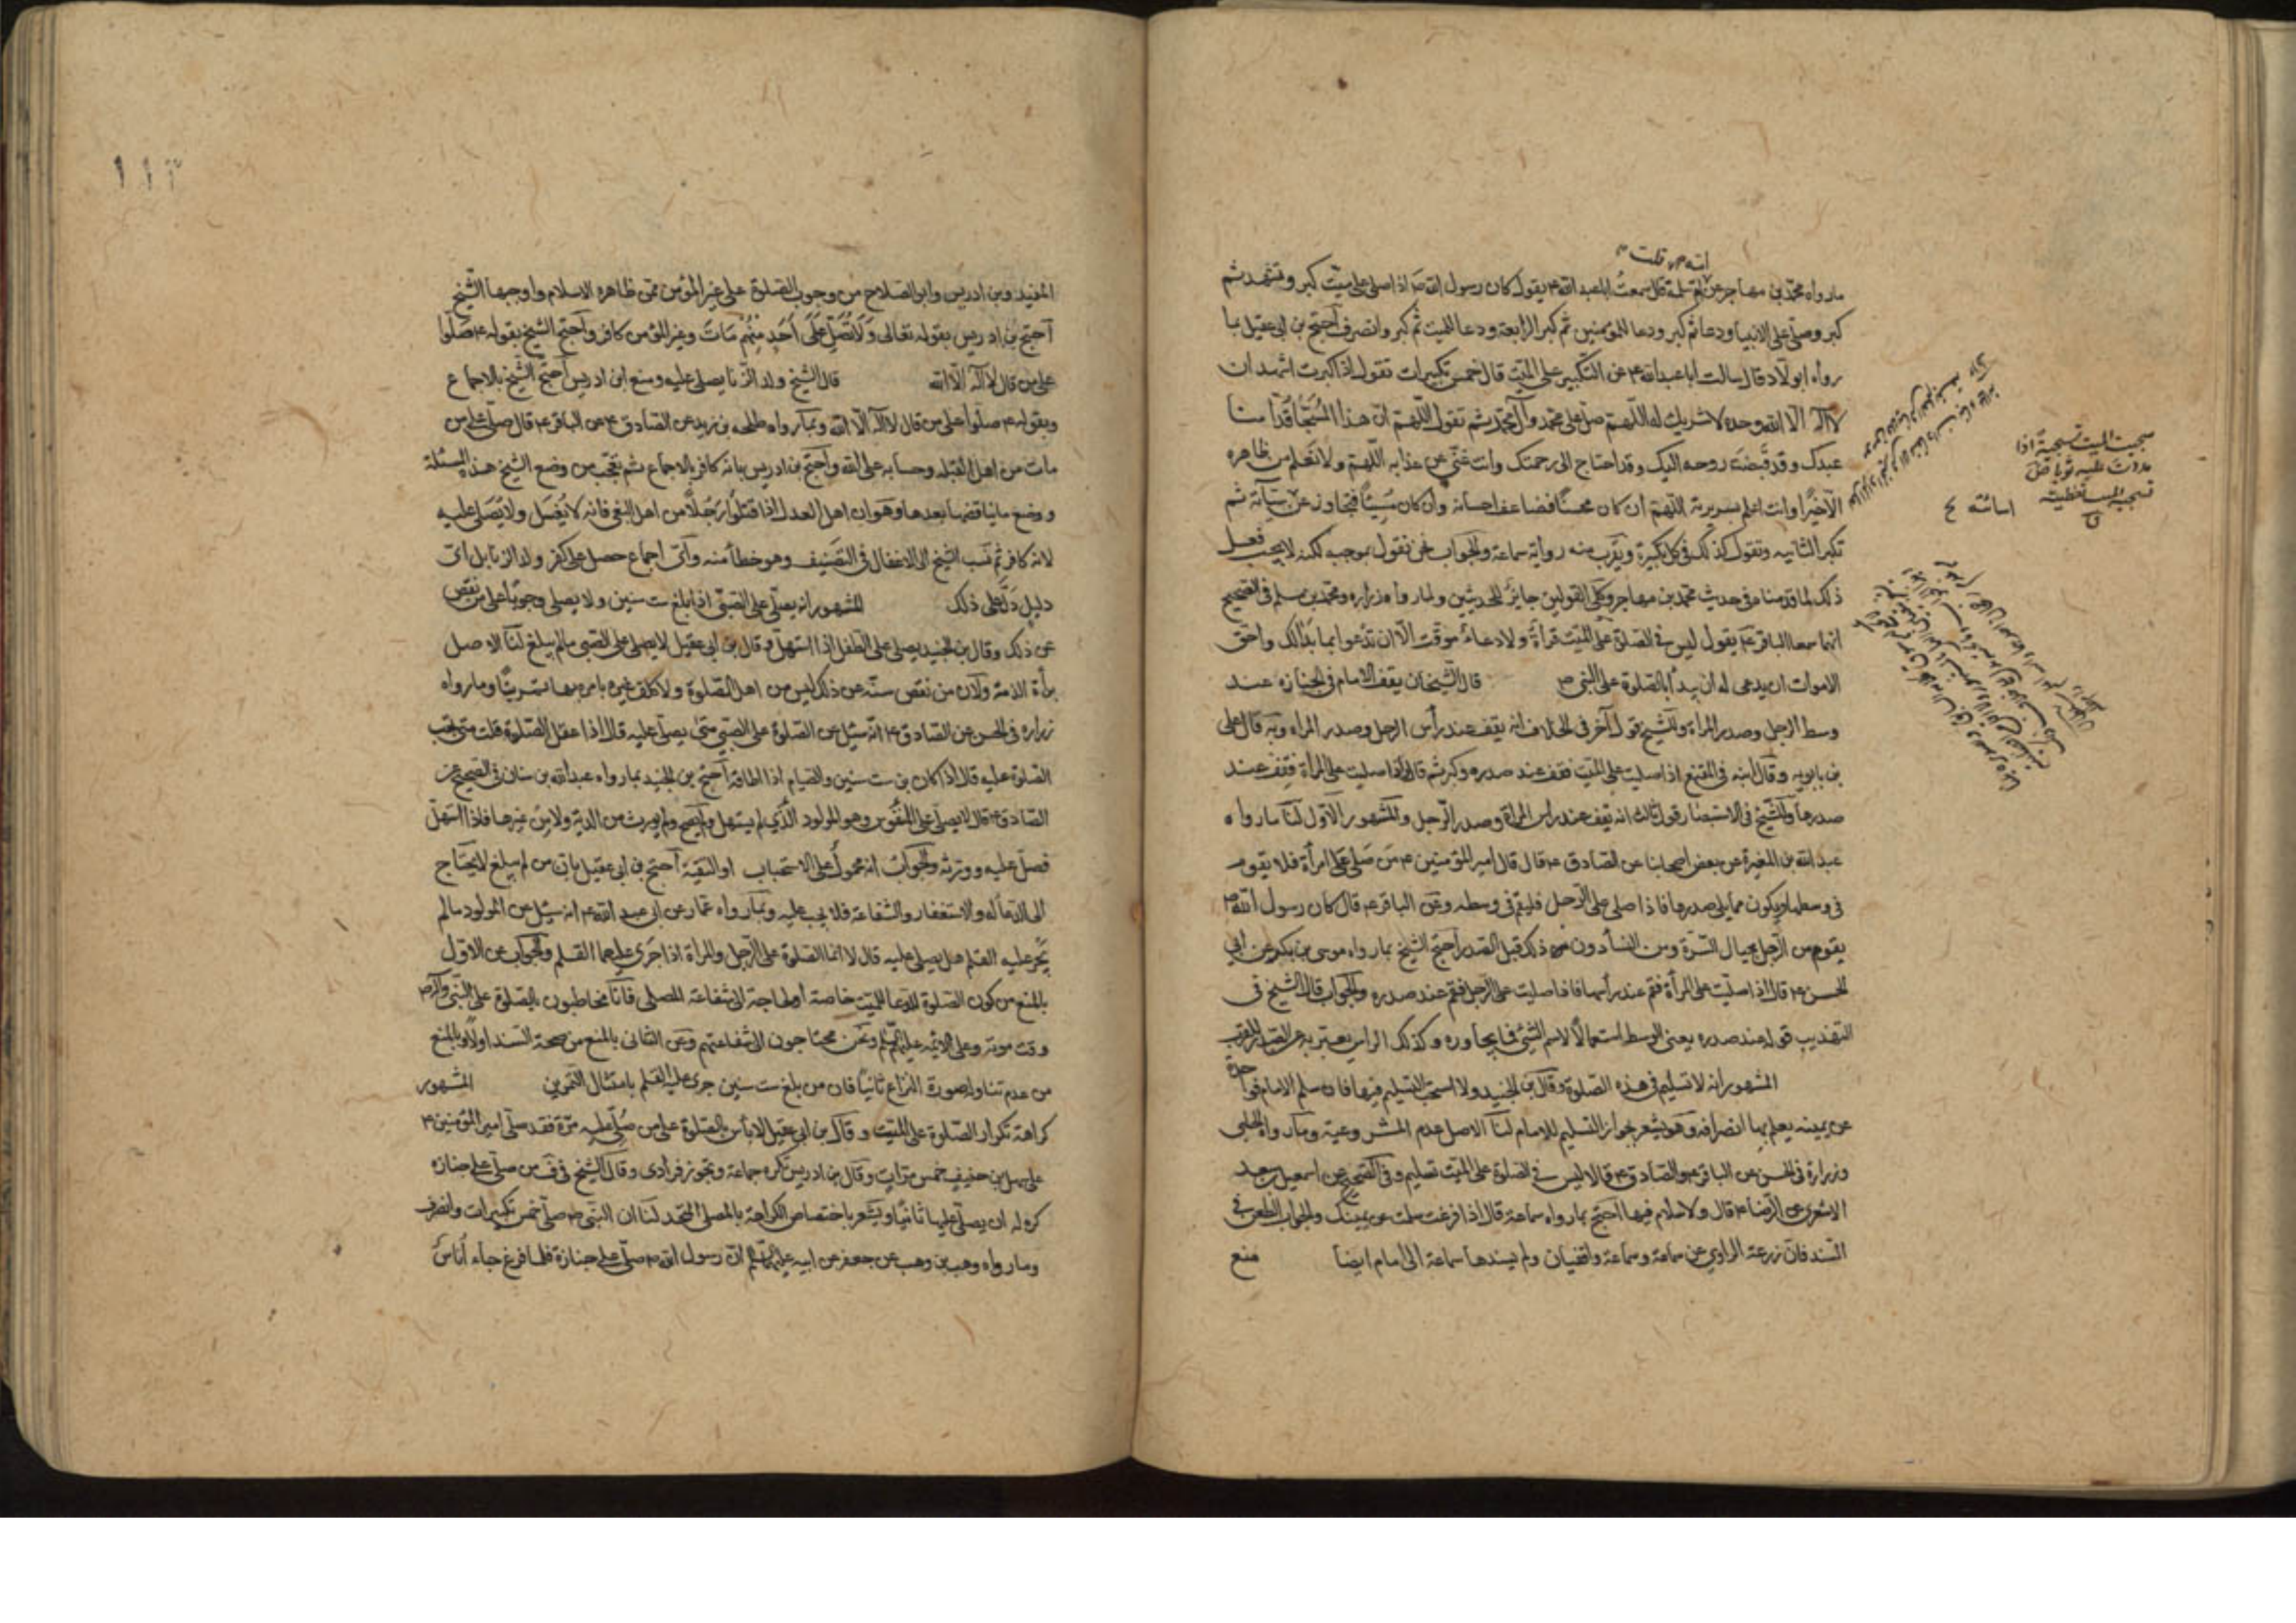 ما رواه محمد بن مهاجر عن امه ام سلمة قال سمعت ابا عبد الله ع يقول كان رسول الله ص اذا صلى على ميت كبر وتشهد ثم
كبر وصلى على الانبيا ودعا ثم كبر ودعا للمؤمنين ثم كبر الرابعة ودعا للميت ثم كبر وانصرف احتج بن ابي عقيل بما
رواه ابو ولاد قال سالت ابا عبد الله ع عن التكبير على الميت قال خمس تكبيرات تقول اذا كبرت اشهد ان
لا اله الا الله وحده لا شريك له اللهم صل على محمد وآل محمد ثم تقول اللهم ان هذا المسجا قدامنا
عبدك وقد قبضت روحه اليك وقد احتاج الى رحمتك وانت غني عن عذابه اللهم ولا نعلم من ظاهره
الا خيرا وانت اعلم بسريرته اللهم ان كان محسنا فضاعف احسانه وان كان مسيئا فتجاوز عن سيآته ثم
تكبر الثانيه وتقول كذلك في كل تكبيرة ويقرب منه رواية سماعة والجواب نحن نقول بموجبه لكنه لا يجب فعل
ذلك لما قدمنا في حديث محمد بن مهاجر وكلى القولين جايز للحديثين ولما رواه زراره ومحمد بن مسلم في الصحيح
انهما سمعا الباقر ع يقول ليس في الصلوة على الميت قرأة ولا دعاء موقت الا ان تدعوا بما بدا لك واحق
الاموات ان يدعى له ان يبدأ بالصلوة على النبي ص قال الشيخان يقف الامام في الجنازه عند
وسط الرجل وصدر المراة وللشيخ قول آخر في الخلاف انه يقف عند رأس الرجل وصدر المراه وبه قال على
بن بابويه وقال ابنه في المقنع اذا صليت على الميت فقف عند صدره وكبر ثم قال واذا صليت على المرأة فقف عند
صدرها وللشيخ في الاستبصار قول ثالث انه يقف عند راس المراة وصدر الرجل والمشهور الاول لنا ما رواه
عبد الله بن المغيرة عن بعض اصحابنا عن الصادق ع قال قال امير المؤمنين ع من صلى على امرأة فلا يقوم
في وسطها ويكون مما يلي صدرها فاذا صلى على الرجل فليقم في وسطه وعن الباقر ع قال كان رسول الله ص
يقوم من الرجل بحيال السرة ومن النسأ دون ذلك قبل الصدر احتج الشيخ بما رواه موسى بن بكر عن ابي
الحسن ع قال اذا صليت على المرأة فقم عند رأسها فاذا صليت على الرجل فقم عند صدره والجواب قال الشيخ في
التهذيب قوله عند صدره يعنى الوسط استعمالا لاسم الشئ فيما يجاوره وكذلك الراس يعبر به عن الصدر للقرب
المشهور انه لا تسليم في هذه الصلوة وقال بن الجنيد ولا استحب التسليم فيها فان سلم الامام فواحدة
عن يمينه يعلم بها انصرافه وهو يشعر بجواز التسليم للامام لنا الاصل عدم المشروعية وما رواه الحلبي
وزرارة في الحسن عن الباقر ع والصادق ع قالا ليس في الصلوة على الميت تسليم وفي الصحيح عن اسمعيل بن سعد
الاشعرى عن الرضا ع قال ولا سلام فيها احتج بما رواه سماعة قال اذا فرغت سلمت عن يمينك والجواب الطعن في
السند فان زرعة الراوي عن سماعة وسماعة واقفيان ولم يسندها سماعة الى امام ايضا منع
سجيت الميت تسجية اذا
مددت عليه ثوبا
تسجية الميت تغطيته
اسائته
المفيد وبن ادريس وابو الصلاح من وجوب الصلوة على غير المؤمن ممن ظاهره الاسلام واوجبها الشيخ
احتج بن ادريس بقوله تعالى ولا تصل على احد منهم مات وغير المؤمن كافر واحتج الشيخ بقوله ع صلوا
على من قال لا اله الا الله قال الشيخ ولد الزنا يصلى عليه ومنع ابن ادريس احتج الشيخ بالاجماع
وبقوله ع صلوا على من قال لا اله الا الله وبما رواه طلحه بن زيد عن الصادق ع عن الباقر ع قال صل على من
مات من اهل القبله وحسابه على الله واحتج بن ادريس بانه كافر بالاجماع ثم تعجب من وضع الشيخ هذه المسئلة
ووضع ما يناقضها بعدها وهو ان اهل العدل اذا قتلوا رجلا من اهل البغى فانه لا يغسل ولا يصلى عليه
لانه كافر ثم نسب الشيخ الى الاغفال في التصنيف وهو خطأ منه واى اجماع حصل على كفر ولد الزنا بل اى
دليل دل على ذلك المشهور انه يصلى على الصبي اذا بلغ ست سنين ولا يصلى وجوبا على من نقص
عن ذلك وقال بن الجنيد يصلى على الطفل اذا استهل وقال بن ابي عقيل لا يصلى على الصبي ما لم يبلغ لنا الاصل
برأة الذمة ولان من نقص سنه عن ذلك ليس من اهل الصلوة ولا كلف غيره بامره بها تمرينا وما رواه
زراره في الحسن عن الصادق ع انه سئل عن الصلوة على الصبي متى يصلى عليه قال اذا عقل الصلوة قلت متى تجب
الصلوة عليه قال اذا كان بن ست سنين والصيام اذا اطاقه احتج بن الجنيد بما رواه عبد الله بن سنان في الصحيح عن
الصادق ع قال لا يصلى على المنفوس وهو المولود الذي لم يستهل ولم يصح ولم يورث من الدية ولا من غيرها فاذا استهل
فصل عليه وورثه والجواب انه محمول على الاستحباب او التقية احتج بن ابي عقيل بان من لم يبلغ لا يحتاج
الى الدعأ له والاستغفار والشفاعة فلا يجب عليه وبما رواه عمار عن ابي عبد الله ع انه سئل عن المولود ما لم
يجر عليه القلم هل يصلى عليه قال لا انما الصلوة على الرجل والمراة اذا جرى عليهما القلم والجواب عن الاول
بالمنع من كون الصلوة للدعا للميت خاصة او لحاجته الى شفاعة المصلى فانا مخاطبون بالصلوة على النبي وآله ص
وقت موته وعلى الائمه عليهم السلم ونحن محتاجون الى شفاعتهم وعن الثانى بالمنع من صحة السند اولا وبالمنع
من عدم تناوله صورة النزاع ثانيا فان من بلغ ست سنين جرى عليه القلم بامتثال التمرين المشهور
كراهة تكرار الصلوة على الميت وقال بن ابي عقيل لا بأس بالصلوة على من صلى عليه مرة فقد صلى امير المؤمنين ع
على سهل بن حنيف خمس مرات وقال بن ادريس تكره جماعة وتجوز فرادى وقال الشيخ في ف من صلى على جنازه
كره له ان يصلى عليها ثانيا ويشعر باختصاص الكراهة بالمصلى المتحد لنا ان النبي ص صلى خمس تكبيرات وانصرف
وما رواه وهب بن وهب عن جعفر عن ابيه عليهما السلم ان رسول الله ص صلى على جنازة فلما فرغ جاء اناس